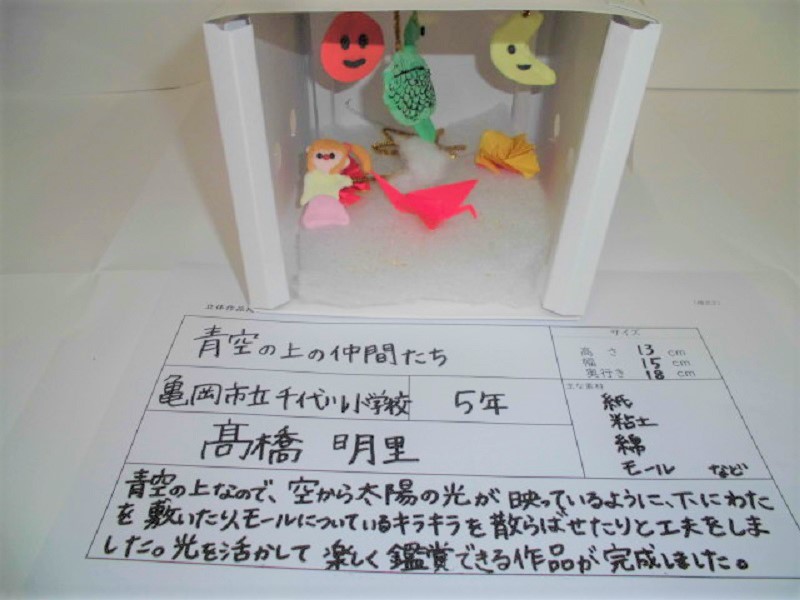 立体作品
青空の上の仲間たち
サイズ
高さ 13 cm
幅 15 cm
奥行き 18 cm
亀岡市立千代川小学校 5年
主な素材
紙
粘土
綿
モール など
髙橋 明里
青空の上なので、空から太陽の光が映っているように、下にわた
を敷いたり、モールについているキラキラを散らばせたりと工夫をしま
した。光を活かして楽しく鑑賞できる作品が完成しました。